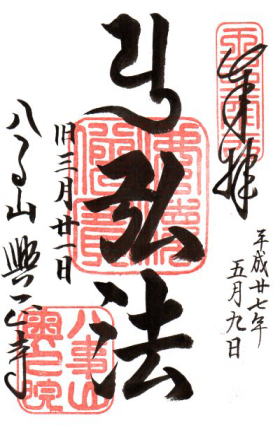 奉拝
平成廿七年
五月九日
弘法
旧三月廿一日
八事山 興正寺
八事山
奥之院